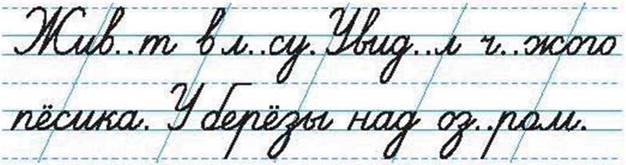 Жив..т в л..су. Увид..л ч..жого
пёсика. У берёзы над оз..ром.